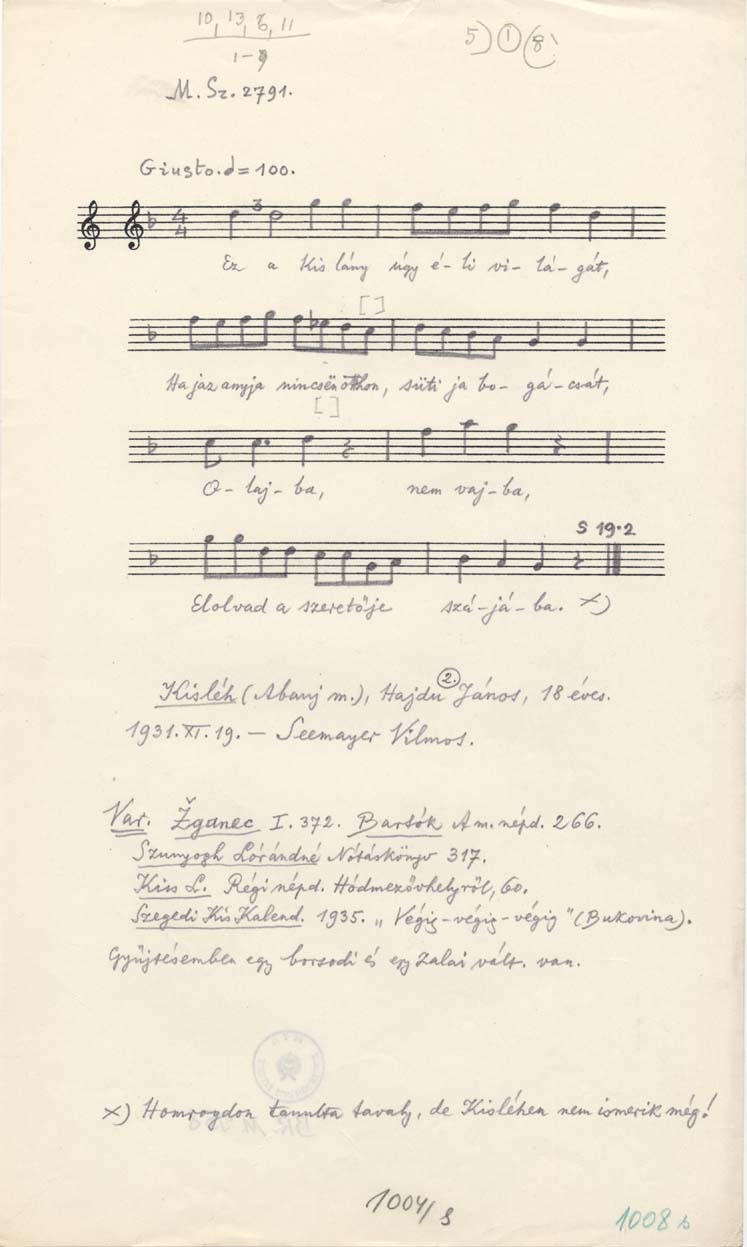 10, 13, 6, 11
1-9
5) 1 (8
M. Sz. 2791.
Giusto. = 100.
4
4
3
Ez a kis lány úgy é-li vi-lá-gát,
[ ]
Ha jaz anyja nincsën otthon, süti ja bo-gá-csát,
[ ]
O-laj-ba, nem vaj-ba,
S 19.2
Elolvad a szeretője szá-já-ba. x)
Kisléh (Abauj m.), Hajdu 2. János, 18 éves.
1931. XI. 19. — Seemayer Vilmos.
Var. Žganec I. 372. Bartók A m. népd. 266.
Szunyogh Lórándné Nótáskönyv 317.
Kiss L. Régi népd. Hódmezővhelyről, 60.
Szegedi Kis Kalend. 1935. „Végig-végig-végig" (Bukovina).
Gyűjtésemben egy borsodi és egy zalai vált. van.
x) Homrogdon tanulta tavaly, de Kisléhen nem ismerik még!
1004/s
1008 b